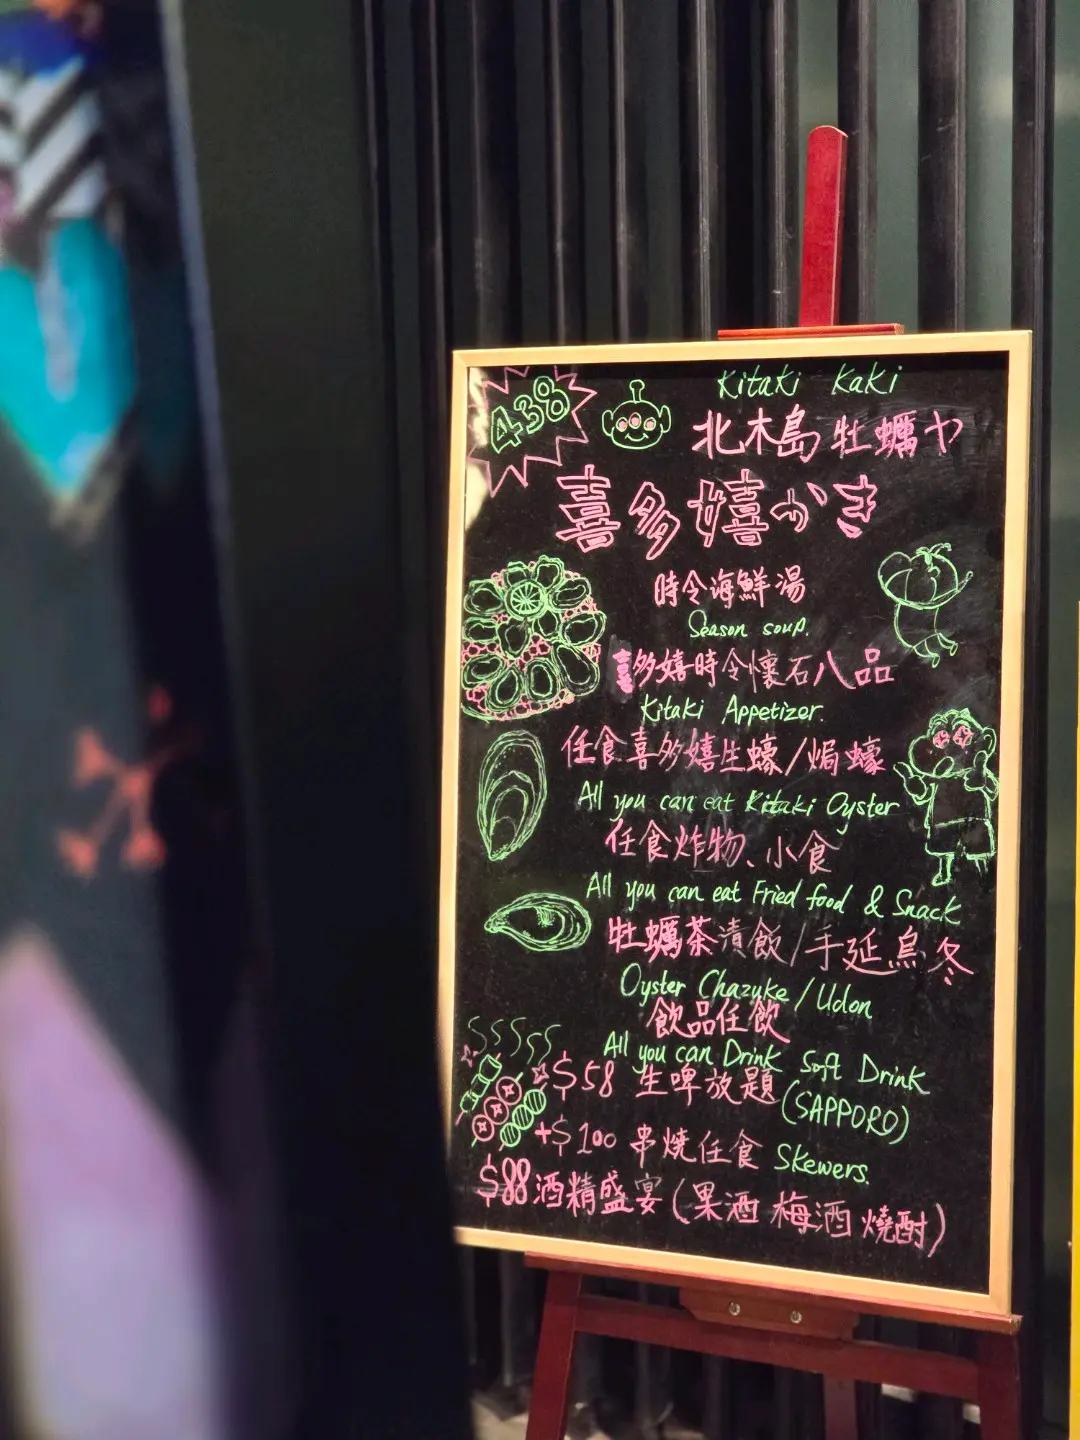 438
Kitaki Kaki
北木島 牡蠣ヤ
喜多嬉かき
時令海鮮湯
Season soup.
喜多嬉時令懷石八品
Kitaki Appetizer.
任食喜多嬉生蠔/焗蠔
All you can eat Kitaki Oyster
任食炸物、小食
All you can eat Fried food & Snack
牡蠣茶漬飯/手延烏冬
Oyster Chazuke/Udon
飲品任飲
All you can Drink Soft Drink
$58 生啤放題
(SAPPORO)
+$100 串燒任食 Skewers.
$88酒精盛宴(果酒 梅酒 燒酎)